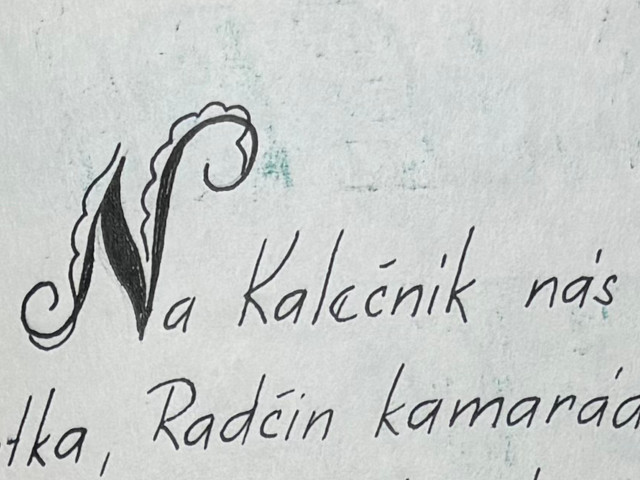 Na Kalečnik nás
tka, Radčin kamarád